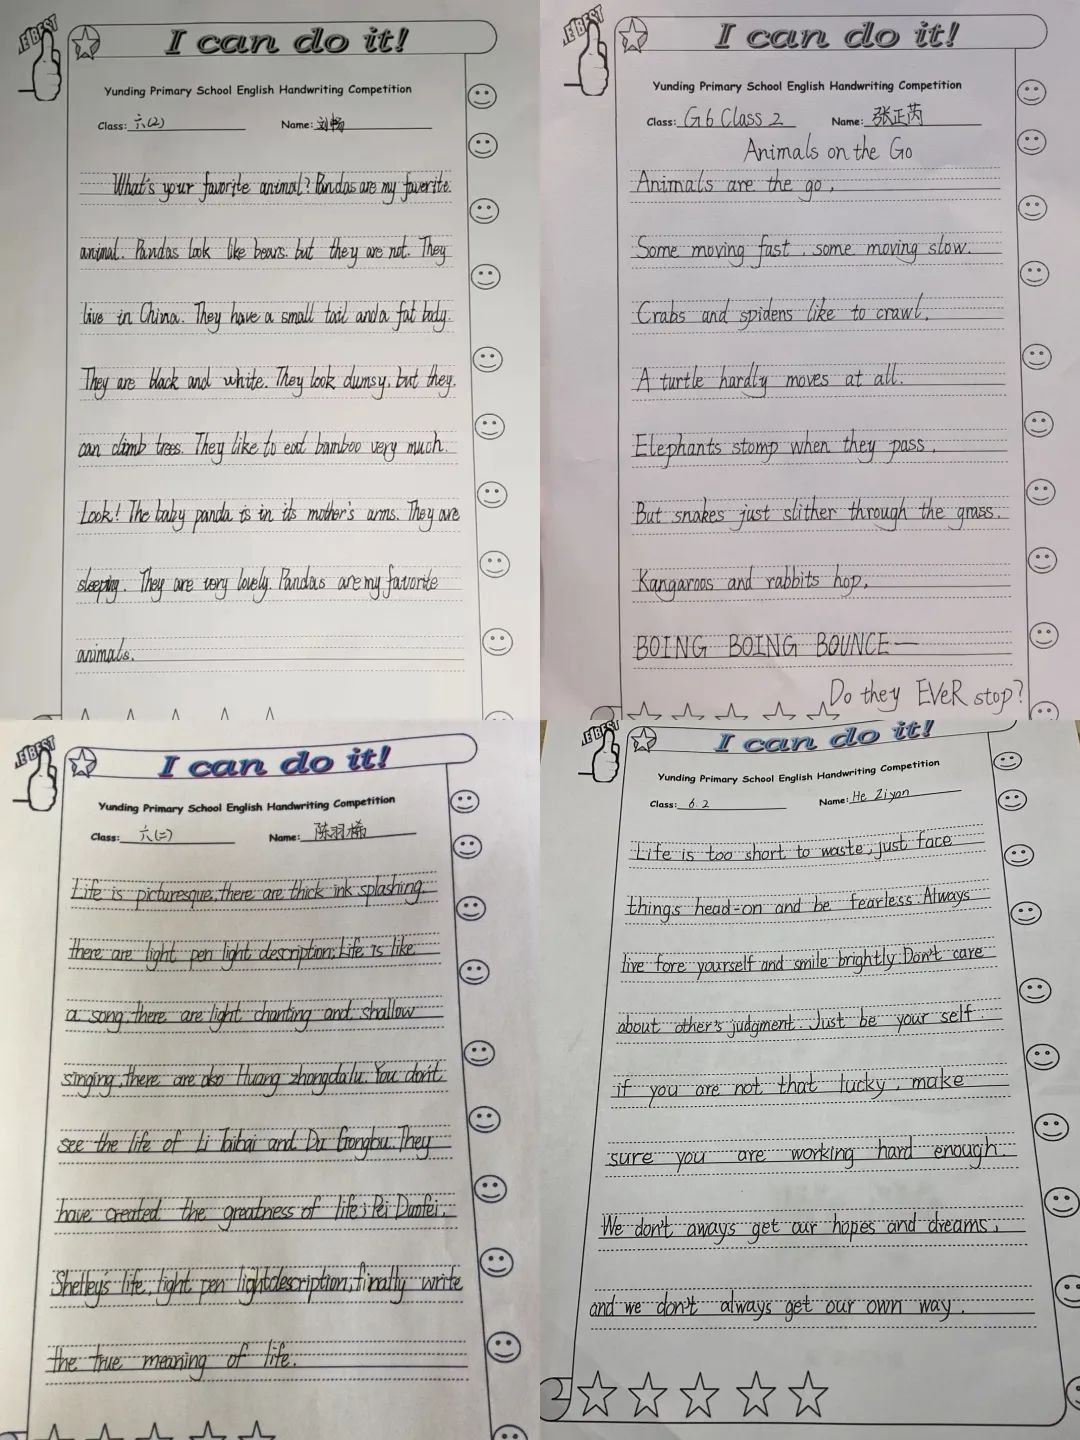 THE BEST
I can do it!
Yunding Primary School English Handwriting Competition
Class: 六(2) Name: 刘畅
What's your favorite animal? Pandas are my faverite.
animal. Pandas look like bears. but they are not. They
live in China. They have a small tail and a fat body.
They are black and white. They look clumsy, but they.
can climb trees. They like to eat bamboo very much.
Look! The baby panda is in its mother's arms. They are
sleeping. They are very lovely. Pandas are my favorite
animals.
THE BEST
I can do it!
Yunding Primary School English Handwriting Competition
Class: G6 Class 2 Name: 张正芮
Animals on the Go
Animals are the go,
Some moving fast, some moving slow.
Crabs and spidens like to crawl,
A turtle hardly moves at all.
Elephants stomp when they pass,
But snakes just slither through the grass.
Kangaroos and rabbits hop,
BOING BOING BOUNCE—
Do they EVeR stop?
THE BEST
I can do it!
Yunding Primary School English Handwriting Competition
Class: 六(二) Name: 陈羽
Life is picturesque, there are thick ink splashing.
there are light pen light description; Life is like
a song, there are light chanting and shallow
singing, there are also Huang zhongdalu. You don't
see the life of Li Taibai and Du Gongbu. They
have created the greatness of life; Pei Duofei,
Shelley's life, light pen light description, finally write
the true meaning of life.
THE BEST
I can do it!
Yunding Primary School English Handwriting Competition
Class: 6.2 Name: He Ziyan
Life is too short to waste, just face
things head-on and be fearless. Always
live fore yourself and smile brightly. Don't care
about other's judgment. Just be your self.
if you are not that lucky, make
sure you are working hard enough.
We don't aways get our hopes and dreams,
and we don't always get our own way.
2